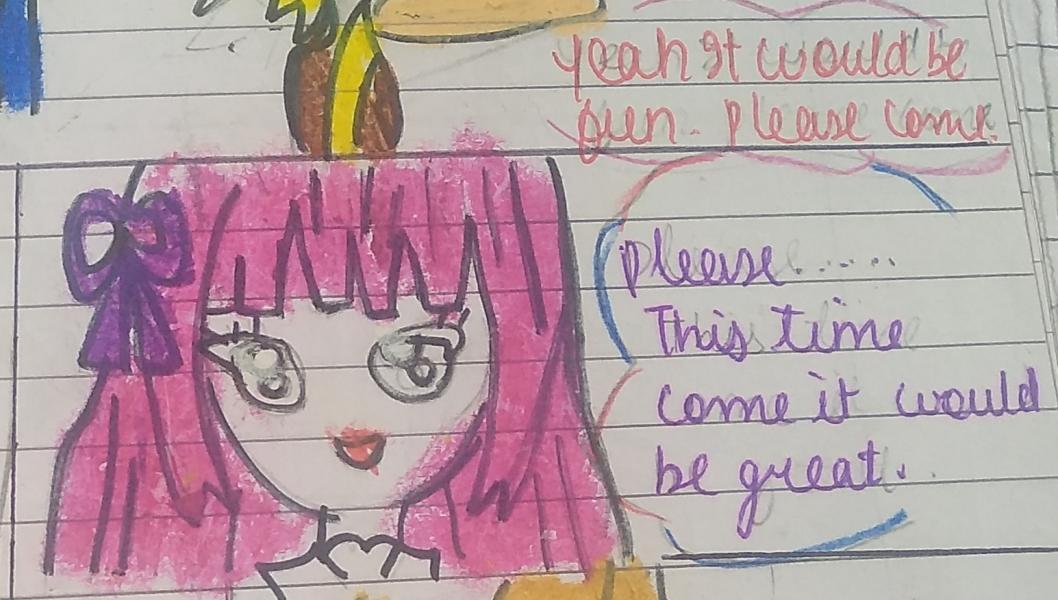 yeah It would be
gun. please come.
please......
This time
come it would
be great.